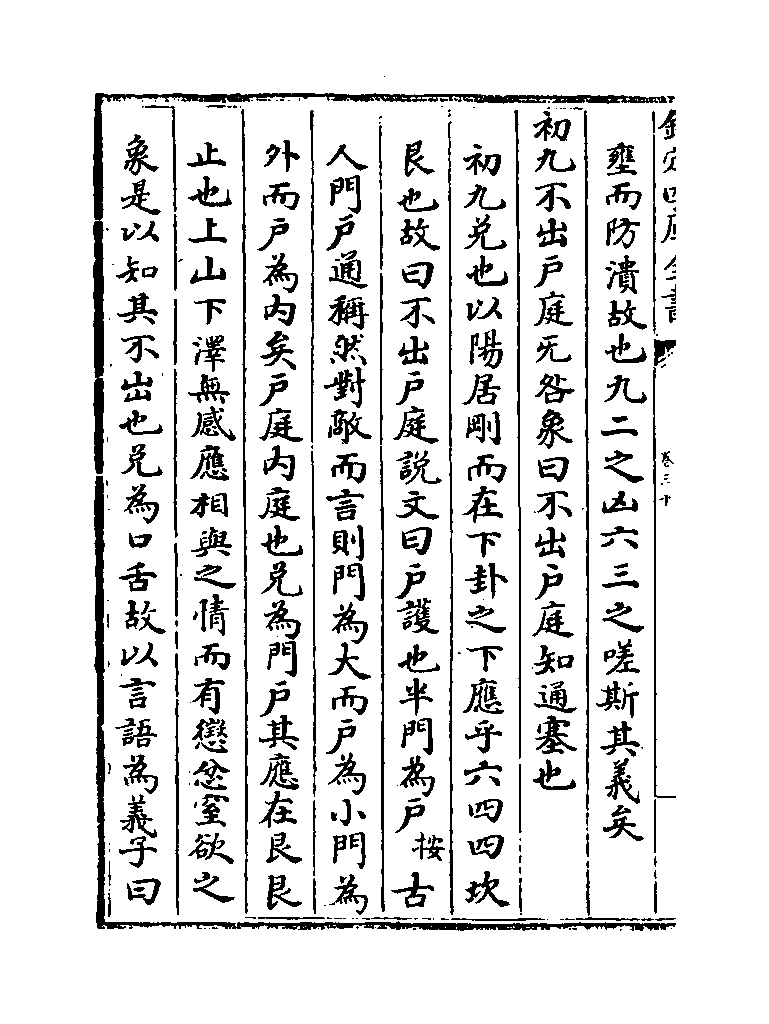 欽定四庫全書
卷三十
壅而防潰故也九二之凶六三之嗟斯其義矣
初九不出戸庭无咎象曰不出戸庭知通塞也
初九兌也以陽居剛而在下卦之下應乎六四四坎
艮也故曰不出戸庭說文曰戸護也半門為戸按古
人門戸通稱然對敵而言則門為大而戸為小門為
外而戸為内矣戸庭内庭也兌為門戸其應在艮艮
止也上山下澤無感應相與之情而有懲忿窒欲之
象是以知其不出也兌為口舌故以言語為義子曰